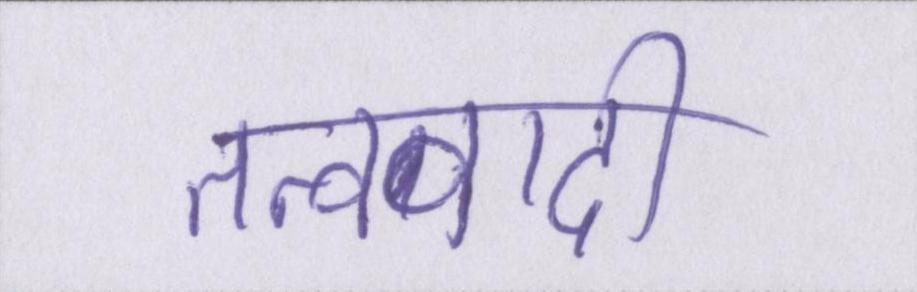 तत्ववादी